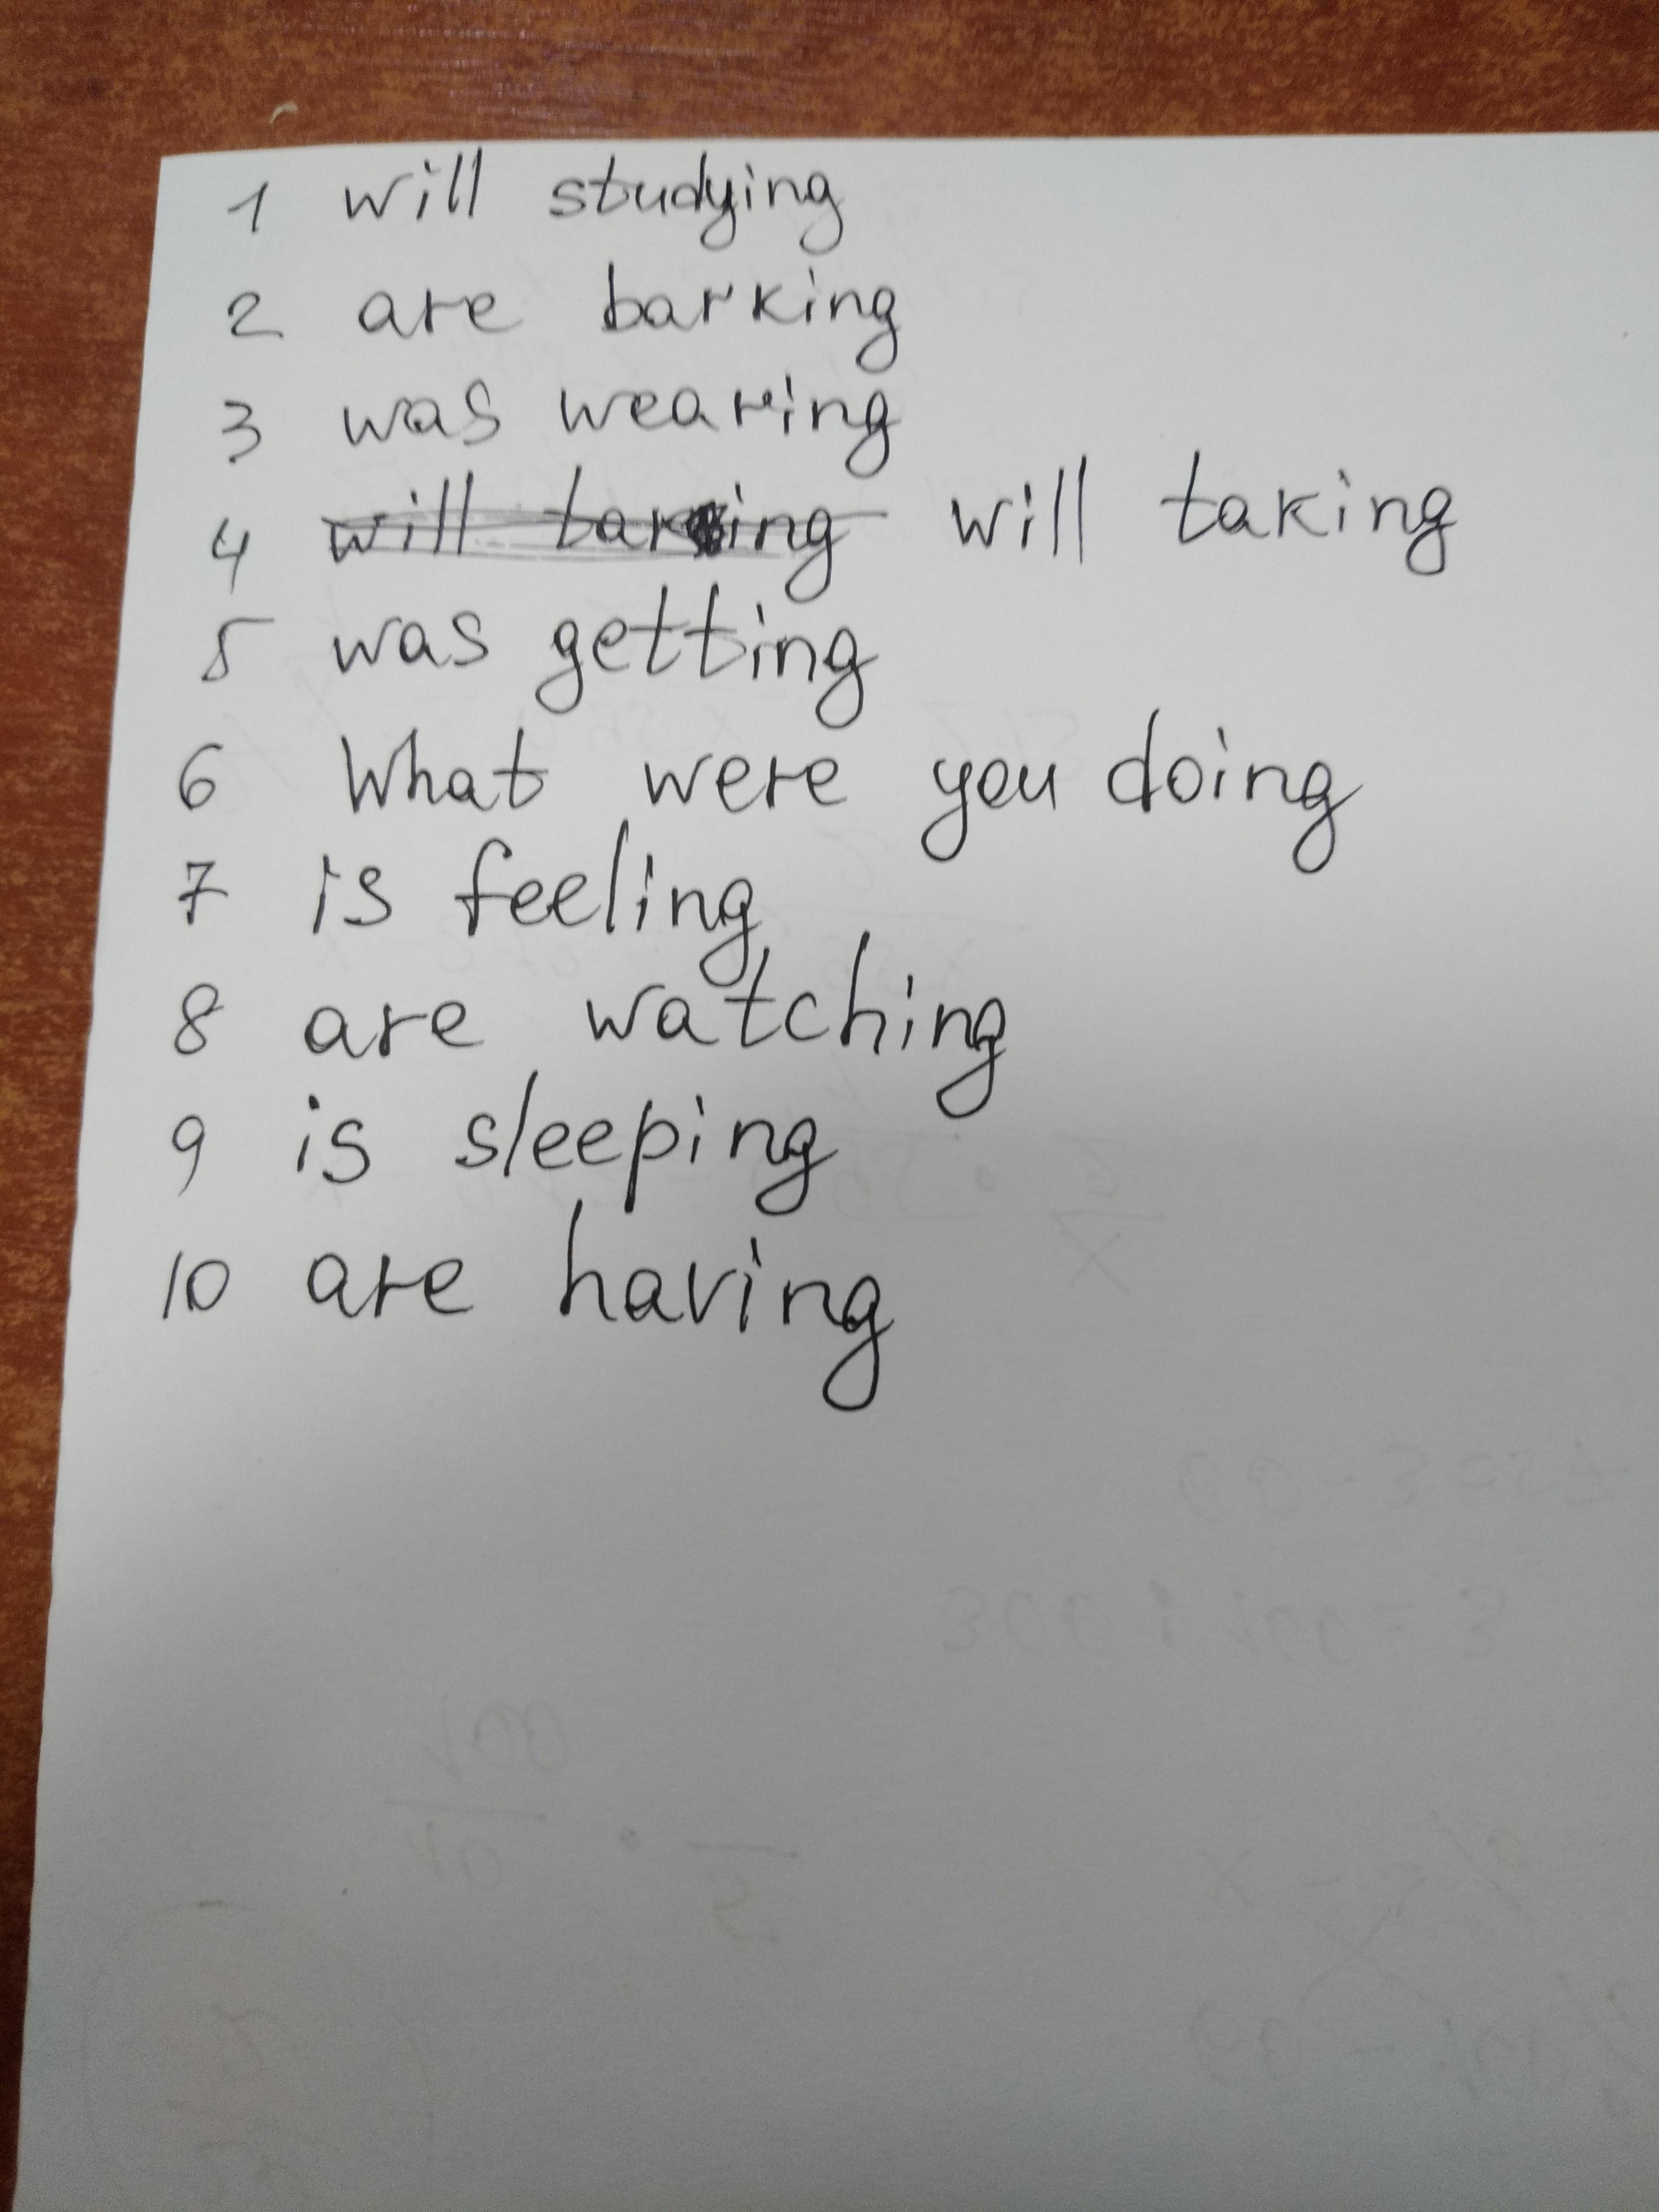 1 will studying
2 are barking
3 was wearing
4 will taking
5 was getting
6 What were you doing
7 is feeling
8 are watching
9 is sleeping
10 are having